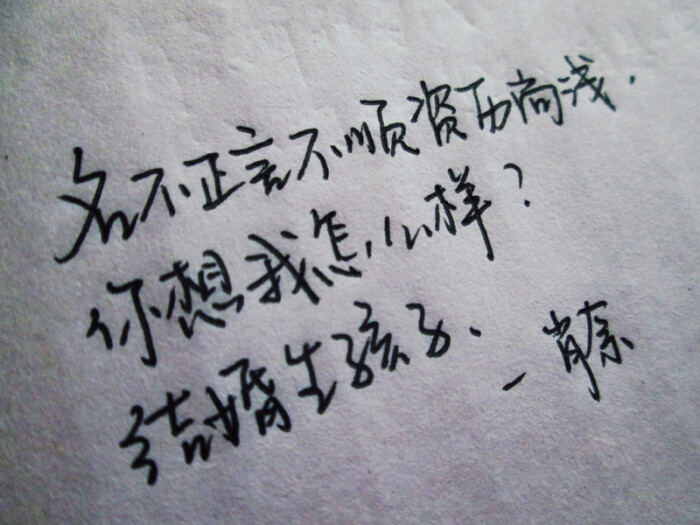 名不正言不顺资历尚浅.
你想我怎么样?
结婚生孩子.
—肖奈